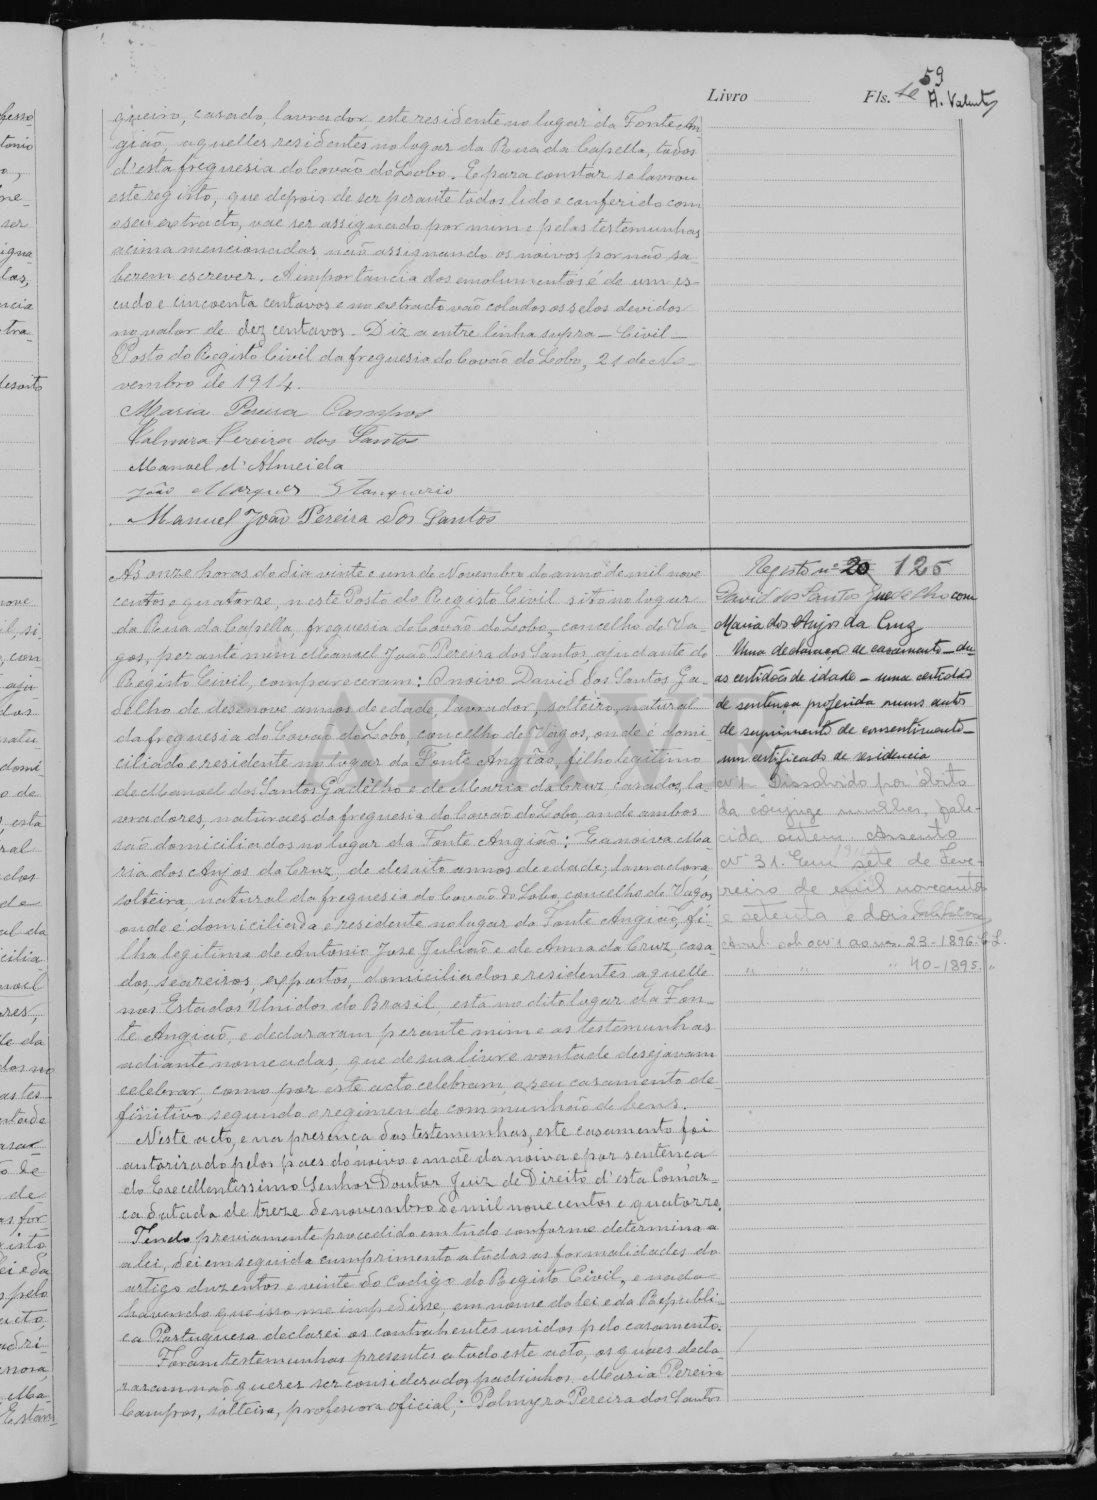 Livro
Fls.
59
A. Valente
gueiro, casado, lavrador este residente no lugar da Fonte An-
gião, aquelles residentes no lugar da Rua da Capella, todos
d'esta freguesia do Covão do Lobo. E para constar se lavrou
este registo, que depois de ser perante todos lido e conferido com
o seu extracto, vae ser assignado por mim e pelas testemunhas
acima mencionadas, não assignando os noivos por não sa-
berem escrever. A importancia dos emolumentos é de um es-
cudo e cincoenta centavos e no extracto vão colados os selos devidos
no valor de dez centavos. Diz a entre linha supra — Civil —
Posto do Registo Civil da freguesia do Covão do Lobo, 21 de No-
vembro de 1914.
Maria Pereira Campos
Palmira Pereira dos Santos
Manoel d'Almeida
João Marques Stanqueiro
Manuel João Pereira dos Santos
A's onze horas do dia vinte e um de Novembro do anno de mil nove
centos e quatorze, n'este Posto do Registo Civil sito no logar
da Rua da Capella, freguesia do Covão do Lobo, concelho de Va-
gos, perante mim Manuel João Pereira dos Santos, ajudante do
Registo Civil, compareceram: O noivo David dos Santos Ga-
delho de desenove annos de edade, lavrador, solteiro, natural
da freguesia do Covão do Lobo, concelho de Vagos, onde é domi-
ciliado e residente no lugar da Fonte Angião, filho legitimo
de Manoel dos Santos Gadelho e de Maria da Cruz, casados, la-
vradores, naturaes da freguesia do Covão do Lobo, onde ambos
são domiciliados no lugar da Fonte Angião; E a noiva Ma-
ria dos Anjos da Cruz, de desoito annos de edade, lavradora,
solteira, natural da freguesia do Covão do Lobo, concelho de Vagos,
onde é domiciliada e residente no lugar da Fonte Angião, fi-
lha legitima de Antonio Jose Julião e de Anna da Cruz, casa-
dos, seareiros, expostos, domiciliados e residentes aquelle
nos Estados Unidos do Brasil esta no dito lugar da Fon-
te Angião, e declararam perante mim e as testemunhas
adiante nomeadas, que de sua livre vontade desejavam
celebrar, como por este acto celebram, o seu casamento de-
finitivo segundo o regimen de communhão de bens.
N'este acto, e na presença das testemunhas, este casamento foi
autorizado pelos paes do noivo e mãe da noiva e por sentença
do Excellentissimo Senhor Doutor Juiz de Direito d'esta Comar-
ca datada de treze de novembro de mil nove centos e quatorze.
Tendo previamente procedido em tudo conforme determina a
a lei, dei em seguida cumprimento a todas as formalidades do
artigo duzentos e vinte do Codigo do Registo Civil, e nada
havendo que isso me impedisse, em nome da lei e da Republi-
ca Portuguesa declarei os contrahentes unidos pelo casamento.
Foram testemunhas presentes a todo este acto, os quaes decla-
raram não querer ser considerados padrinhos, Maria Pereira
Campos, solteira, professora oficial; Palmyra Pereira dos Santos
Registo nº 20 125
David dos Santos Gadelho com
Maria dos Anjos da Cruz
Uma declaração de casamento — du-
as certidões de idade — uma certidão
de sentença proferida nuns autos
de suprimento de consentimento —
um certificado de residencia
nº 1 Dissolvido por óbito
da cônjuge mulher, fale-
cida ontem. Assento
nº 31. Em sete de Feve-
reiro de mil novecentos
e setenta e dois
Averb. sob o nº 1 ao nº 23-1896
" " " 40-1895
ADAVR